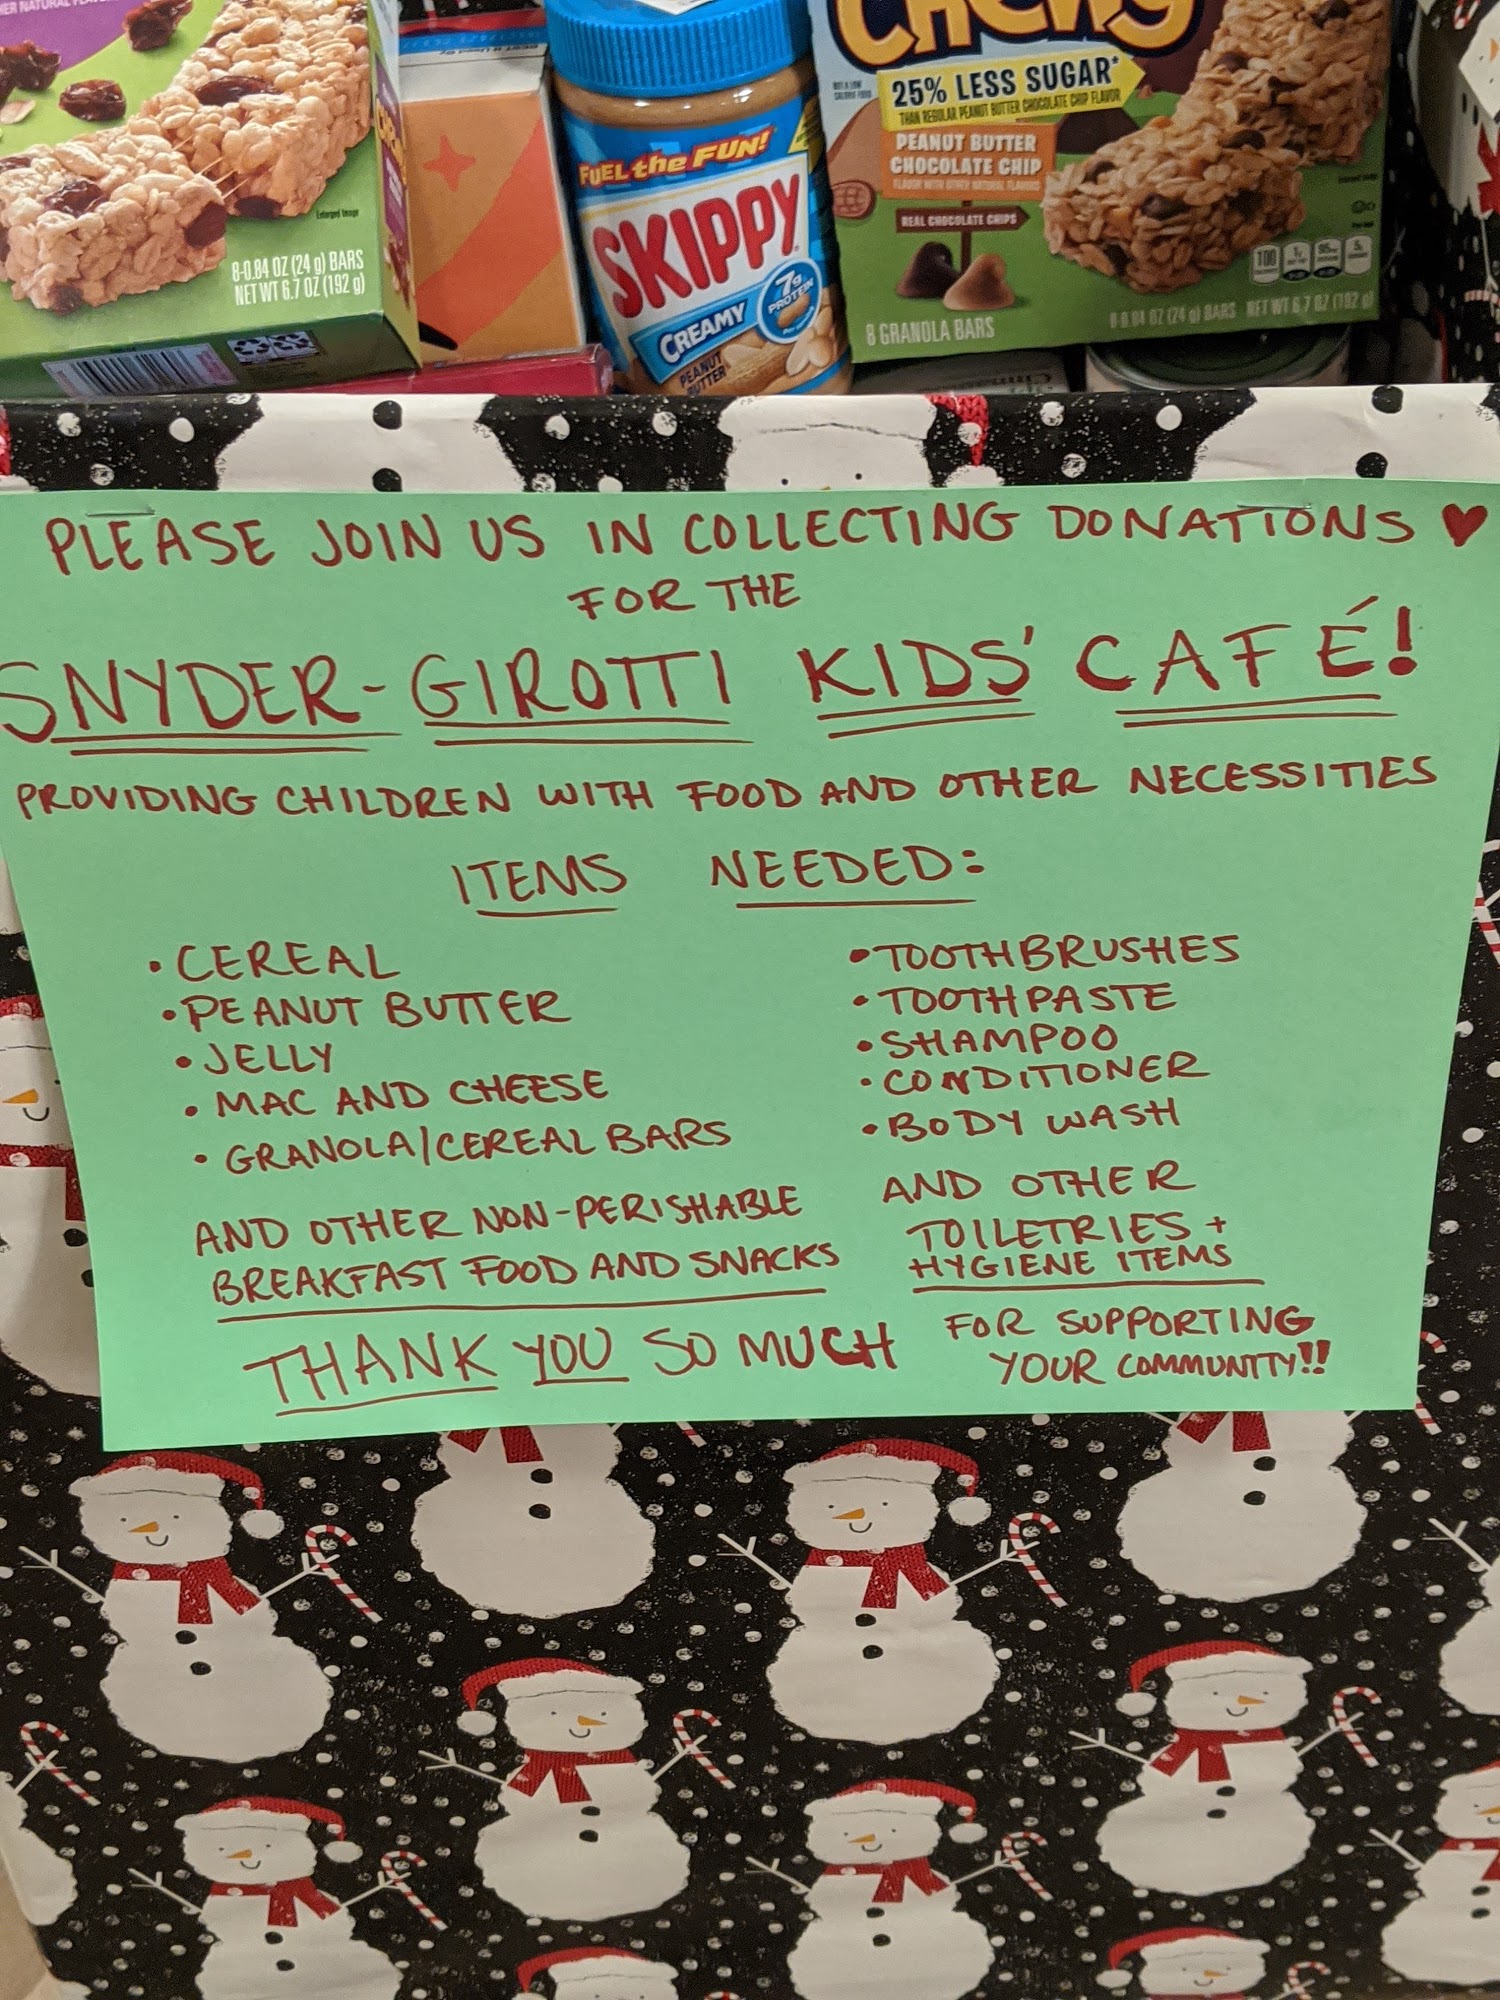 HER NATURAL FLAVOR
8-0.84 OZ (24 g) BARS
NET WT 6.7 OZ (192 g)
FUEL the FUN!
SKIPPY
CREAMY
PEANUT
BUTTER
7g
PROTEIN
Chewy
25% LESS SUGAR*
THAN REGULAR PEANUT BUTTER CHOCOLATE CHIP FLAVOR
PEANUT BUTTER
CHOCOLATE CHIP
FLAVOR WITH OTHER NATURAL FLAVORS
REAL CHOCOLATE CHIPS
8 GRANOLA BARS
8-0.84 OZ (24 g) BARS NET WT 6.7 OZ (192 g)
PLEASE JOIN US IN COLLECTING DONATIONS ♥
FOR THE
SNYDER-GIROTTI KIDS' CAFÉ!
PROVIDING CHILDREN WITH FOOD AND OTHER NECESSITIES
ITEMS NEEDED:
• CEREAL
• PEANUT BUTTER
• JELLY
• MAC AND CHEESE
• GRANOLA/CEREAL BARS
AND OTHER NON-PERISHABLE
BREAKFAST FOOD AND SNACKS
• TOOTHBRUSHES
• TOOTHPASTE
• SHAMPOO
• CONDITIONER
• BODY WASH
AND OTHER
TOILETRIES +
HYGIENE ITEMS
THANK YOU SO MUCH
FOR SUPPORTING
YOUR COMMUNITY!!